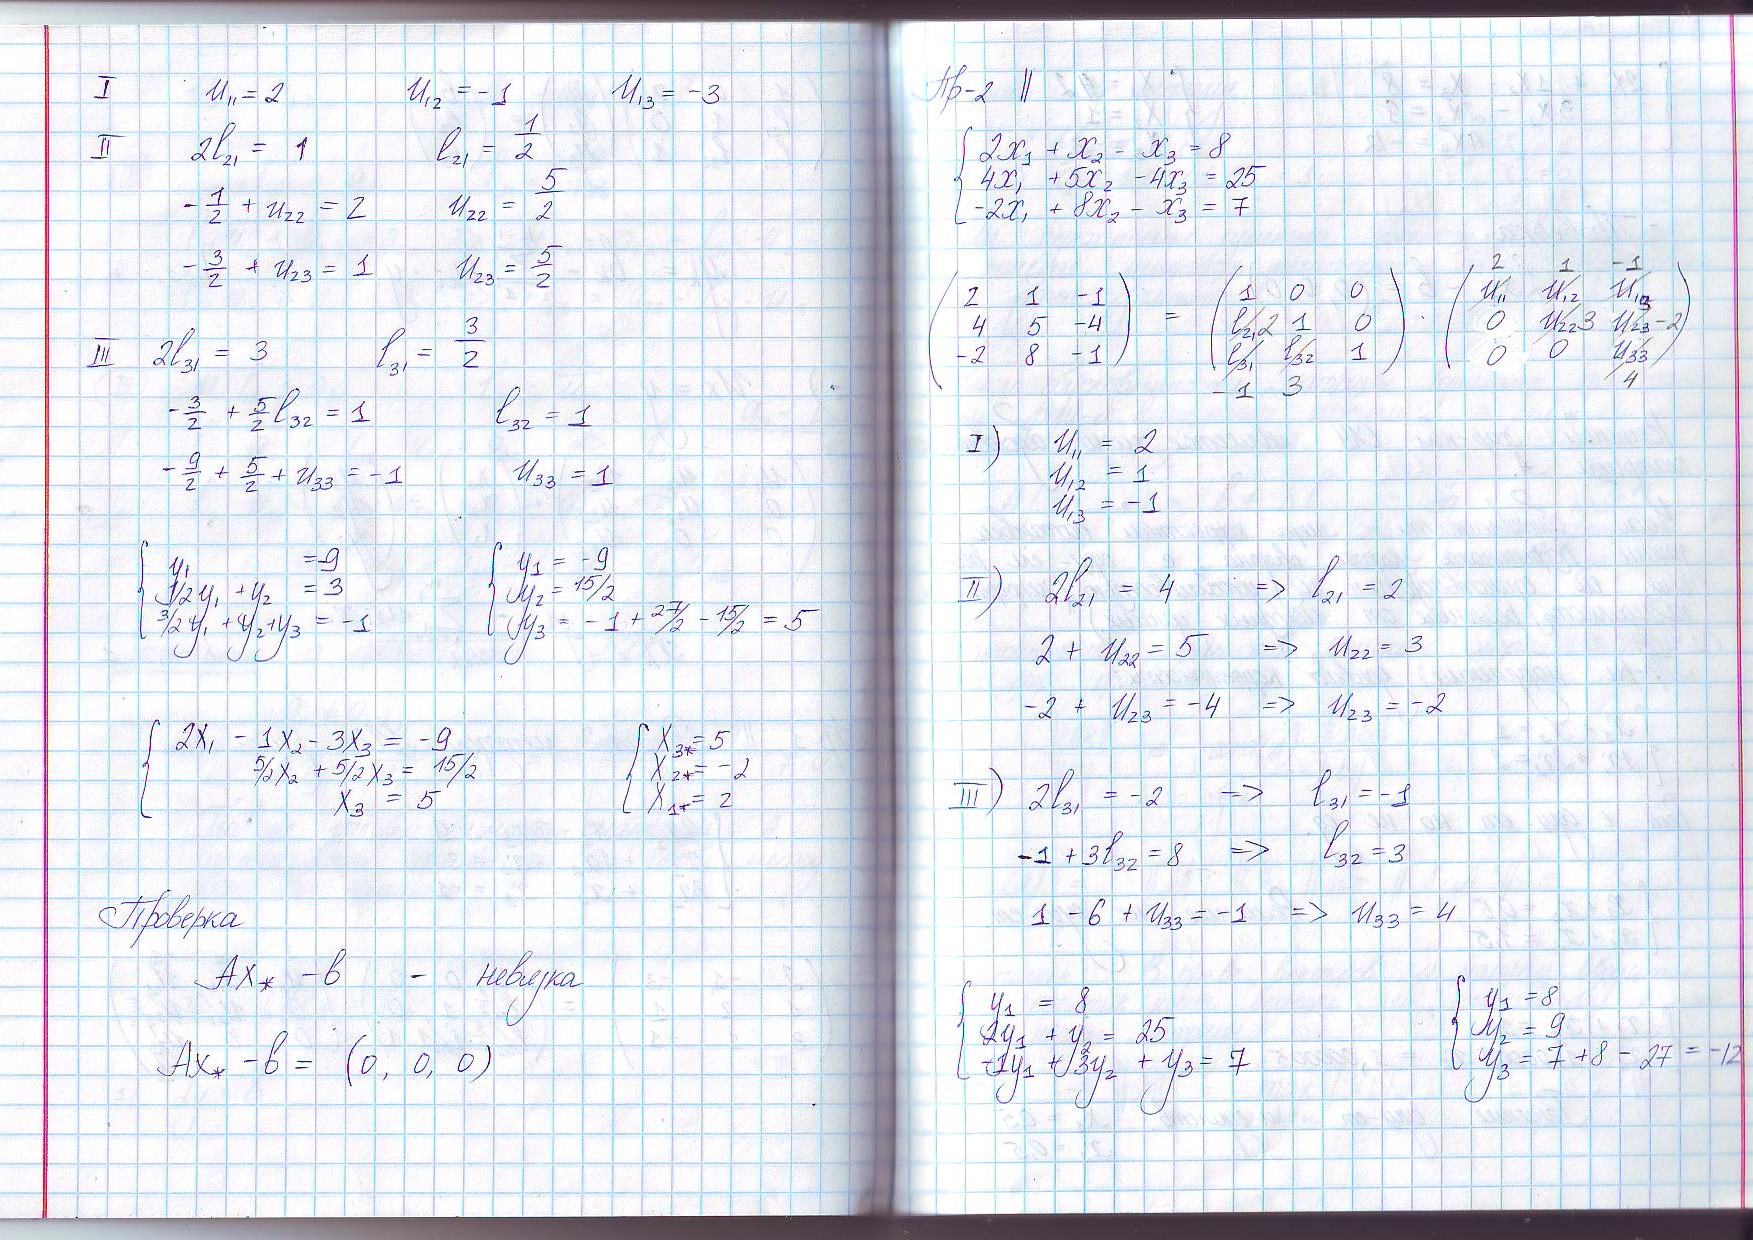 I u₁₁ = 2 u₁₂ = -1 u₁₃ = -3
II 2l₂₁ = 1 l₂₁ = 1/2
-1/2 + u₂₂ = 2 u₂₂ = 5/2
-3/2 + u₂₃ = 1 u₂₃ = 5/2
III 2l₃₁ = 3 l₃₁ = 3/2
-3/2 + 5/2 l₃₂ = 1 l₃₂ = 1
-9/2 + 5/2 + u₃₃ = -1 u₃₃ = 1
y₁ = -9 y₁ = -9
1/2 y₁ + y₂ = 3 y₂ = 15/2
3/2 y₁ + y₂ + y₃ = -1 y₃ = -1 + 27/2 - 15/2 = 5
2x₁ - 1x₂ - 3x₃ = -9 x₃* = 5
5/2 x₂ + 5/2 x₃ = 15/2 x₂* = -2
x₃ = 5 x₁* = 2
Проверка
Ax* - в - невязка
Ax* - в = (0, 0, 0)
Пр-2 ||
2x₁ + x₂ - x₃ = 8
4x₁ + 5x₂ - 4x₃ = 25
-2x₁ + 8x₂ - x₃ = 7
2 1 -1
2 1 -1 1 0 0 u₁₁ u₁₂ u₁₃
4 5 -4 = l₂₁ 2 1 0 · 0 u₂₂ 3 u₂₃ -2
-2 8 -1 l₃₁ l₃₂ 1 0 0 u₃₃
-1 3 4
I) u₁₁ = 2
u₁₂ = 1
u₁₃ = -1
II) 2l₂₁ = 4 => l₂₁ = 2
2 + u₂₂ = 5 => u₂₂ = 3
-2 + u₂₃ = -4 => u₂₃ = -2
III) 2l₃₁ = -2 => l₃₁ = -1
-1 + 3l₃₂ = 8 => l₃₂ = 3
1 - 6 + u₃₃ = -1 => u₃₃ = 4
y₁ = 8 y₁ = 8
2y₁ + y₂ = 25 y₂ = 9
-1y₁ + 3y₂ + y₃ = 7 y₃ = 7 + 8 - 27 = -12